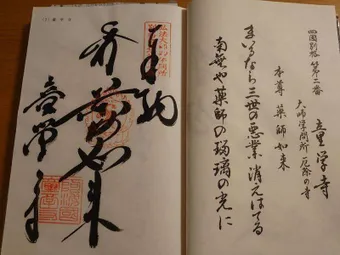 四國別格 第二番
童学寺
大師学問所 厄除の寺
本尊 薬師如来
まいるなら三世の悪業消えはてる
南無や薬師の瑠璃の光に
奉納
薬師如来
童学寺